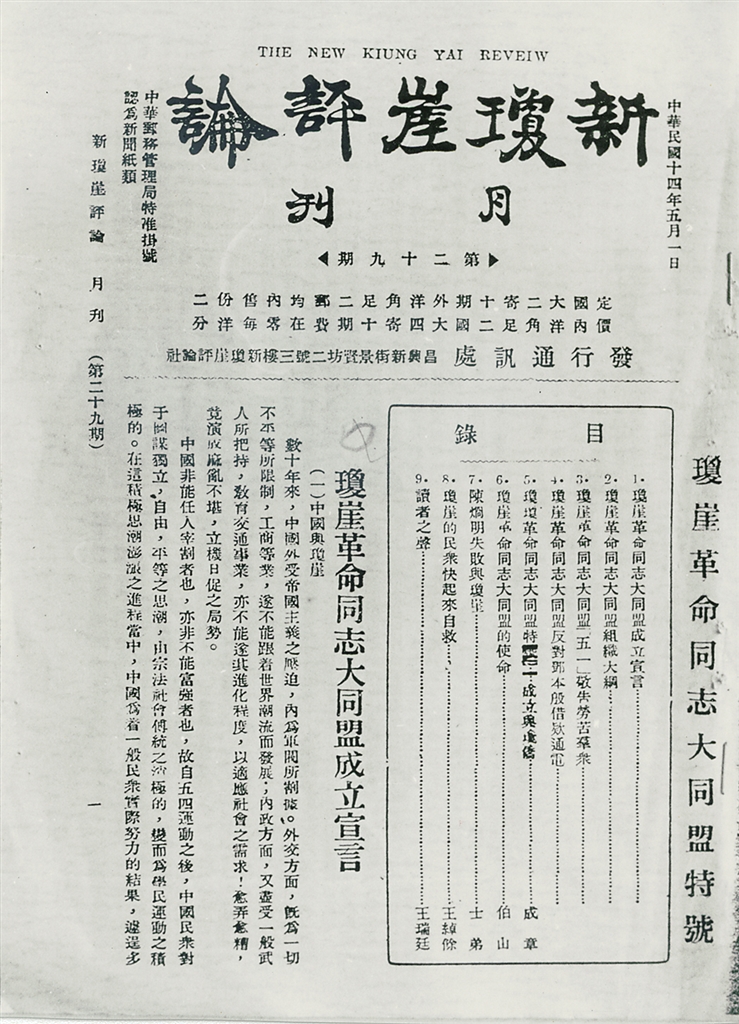 THE NEW KIUNG YAI REVEIW
中華民國十四年五月一日
新瓊崖評論
月刊
第二十九期
中華郵務管理局特准掛號
認爲新聞紙類
定國大二寄十期外洋角足二郵均內舊份二
價內洋角足二國大四寄十期費在零每洋分
發行通訊處 昌興新街景賢坊二號三樓新瓊崖評論社
瓊崖革命同志大同盟特號
目錄
1.瓊崖革命同志大同盟成立宣言
2.瓊崖革命同志大同盟組織大綱
3.瓊崖革命同志大同盟「五一」敬告勞苦羣衆
4.瓊崖革命同志大同盟反對鄧本殷借欵通電
5.瓊崖革命同志大同盟特 成立與 成章
6.瓊崖革命同志大同盟的使命 伯山
7.陳烱明失敗與瓊崖 士弟
8.瓊崖的民衆快起來自救 王綽餘
9.讀者之聲 王瑞廷
瓊崖革命同志大同盟成立宣言
(一)中國與瓊崖
數十年來,中國外受帝國主義之壓迫,內爲軍閥所割據。外交方面,旣爲一切
不平等所限制,工商等業,遂不能跟着世界潮流而發展;內政方面,又盡受一般武
人所把持,敎育交通事業,亦不能遂其進化程度,以適應社會之需求!愈弄愈糟,
竟演成糜亂不堪,立機日促之局勢。
中國非能任人宰割者也,亦非不能富强者也,故自五四運動之後,中國民衆對
于國謀獨立,自由,平等之思潮,由宗法社會傅統之消極的,變而爲學民運動之積
極的。在這積極思潮澎漲之進程當中,中國爲着一般民衆實際努力的結果,遽逞多
新瓊崖評論 月刊 (第二十九期)
一